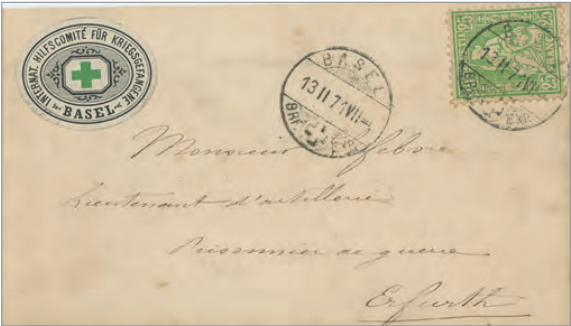 INTERNAT. HILFSCOMITÉ FÜR KRIEGSGEFANGENE
BASEL
BASEL
13 II 71 VII
BRF. EXP.
25
25
13 II 71 VII
BRF. EXP.
Monsieur Lefebvre
Lieutenant d'artillerie
Prisonnier de guerre
Erfurth